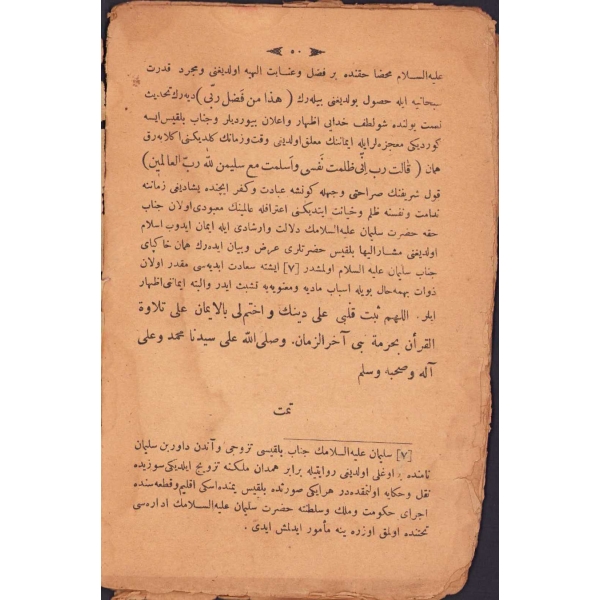 ٥٠
عليه السلام محضا حقنده بر فضل وعنايت الهيه اولديغنى ومجرد قدرت
سبحانيه ايله حصول بولديغنى بيله رك (هذا من فضل ربّى) ديه رك تحديث
نعمت يولنده شو لطف خدايى اظهار واعلان بيورديلر وجناب بلقيس ايسه
كورديكى معجزه لر ايله ايمانك معلق اولديغى وقت وزمانك كلديكنى اكلايه رق
همان (قالت رب إنّى ظلمت نفسى وأسلمت مع سليمن لله ربّ العالمين)
قول شريفنك صراحتى وجهله كونشه عبادت وكفر ايچنده يشاديغى زماننه
ندامت ونفسنه ظلم وخيانت ايتديكنى اعترافله عالمينك معبودى اولان جناب
حقه حضرت سليمان عليه السلامك دلالت وارشادى ايله ايمان ايدوب اسلام
اولديغنى مشار اليها بلقيس حضرتلرى عرض وبيان ايده رك همان خاكپاى
جناب سليمان عليه السلام اولمشدر [٧] ايشته سعادت ابديه سى مقدر اولان
ذوات بهمه حال بويله اسباب ماديه ومعنويه يه تشبث ايدر والبته ايماننى اظهار
ايلر. اللهم ثبت قلبى على دينك و اختم لى بالايمان على تلاوة
القرأن بحرمة نبى آخر الزمان. وصلى الله على سيدنا محمد وعلى
آله وصحبه وسلم
تمت
[٧] سليمان عليه السلامك جناب بلقيسى تزوجى وآندن داود بن سليمان
نامنده اوغلى اولديغى روايتيله برابر همدان ملكنه تزويج ايلديكى سوزيده
نقل وحكايه اولنمقده در هر ايكى صورتده بلقيس يمنده اسكى اقليم وقطعه سنده
اجراى حكومت وملك وسلطنته حضرت سليمان عليه السلامك اداره سى
تحتنده اولمق اوزره ينه مأمور ايدلمش ايدى.